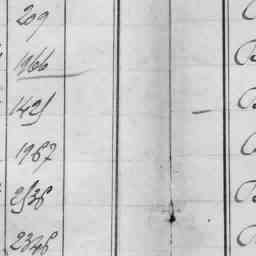 209
1966
1425
1987
2538
2348